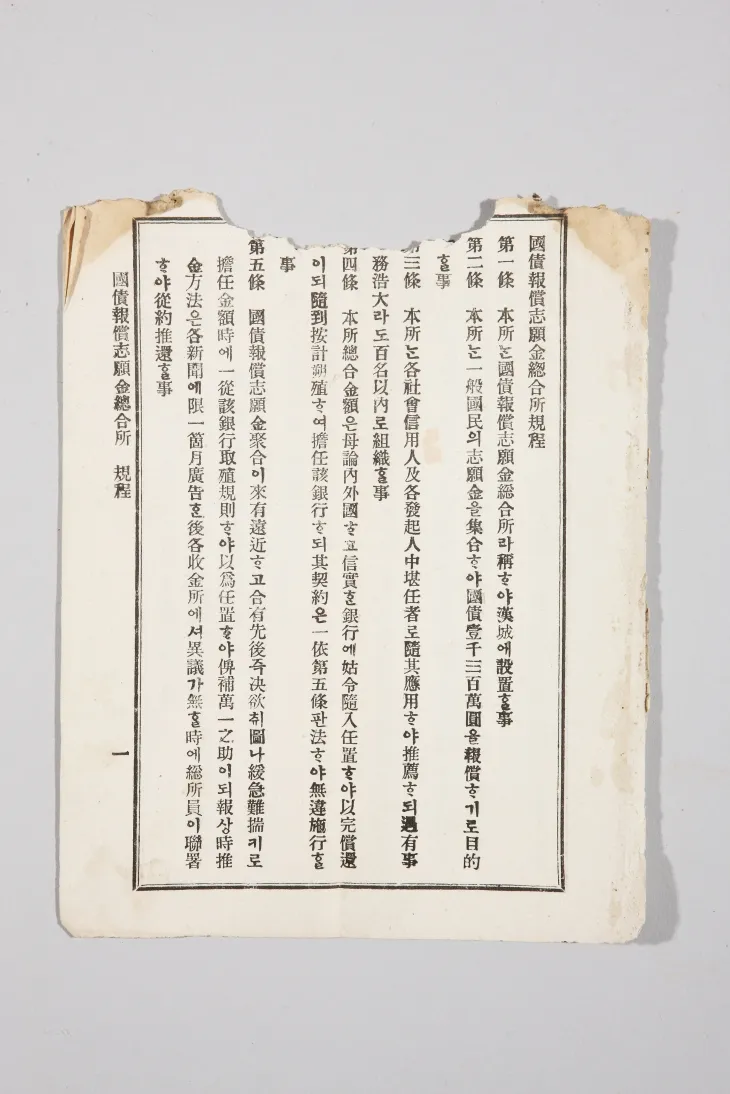 國債報償志願金總合所規程
第一條 本所ᄂᆞᆫ國債報償志願金総合所라稱ᄒᆞ야漢城에設置ᄒᆞᆯ事
第二條 本所ᄂᆞᆫ一般國民의志願金을集合ᄒᆞ야國債壹千三百萬圓을報償ᄒᆞ기로目的
ᄒᆞᆯ事
第三條 本所ᄂᆞᆫ各社會信用人及各發起人中堪任者로隨其應用ᄒᆞ야推薦ᄒᆞ되遇有事
務浩大라도百名以內로組織ᄒᆞᆯ事
第四條 本所總合金額은母論內外國ᄒᆞ고信實ᄒᆞᆫ銀行에姑令隨入任置ᄒᆞ야以完償還
이되隨到按計朔殖ᄒᆞ여擔任該銀行ᄒᆞ되其契約은一依第五條판法ᄒᆞ야無違施行ᄒᆞᆯ
事
第五條 國債報償志願金聚合이來有遠近ᄒᆞ고合有先後즉決欲취圖나緩急難揣키로
擔任金額時에一從該銀行取殖規則ᄒᆞ야以爲任置ᄒᆞ야俾補萬一之助이되報상時推
金方法은各新聞에限一箇月廣告ᄒᆞᆫ後各收金所에셔異議가無ᄒᆞᆯ時에総所員이聯署
ᄒᆞ야從約推還ᄒᆞᆯ事
國債報償志願金總合所 規程
一